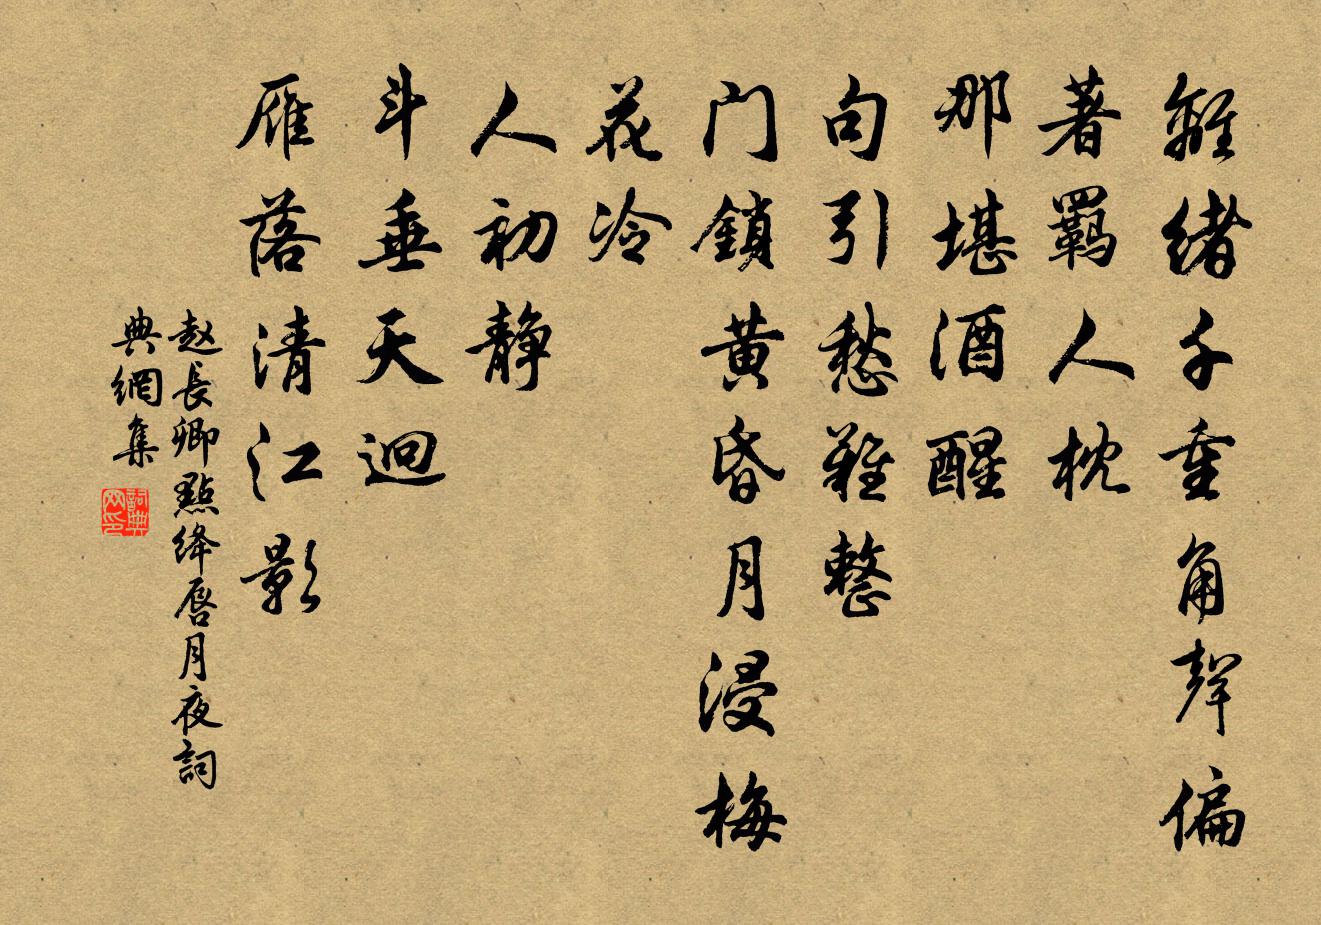 離緒千重角聲偏
著羈人枕
那堪酒醒
句引愁難整
门鎖黃昏月浸梅
花冷
人初静
斗垂天迥
雁落清江影
赵長卿點绛唇月夜詞
典網集
詞典网印